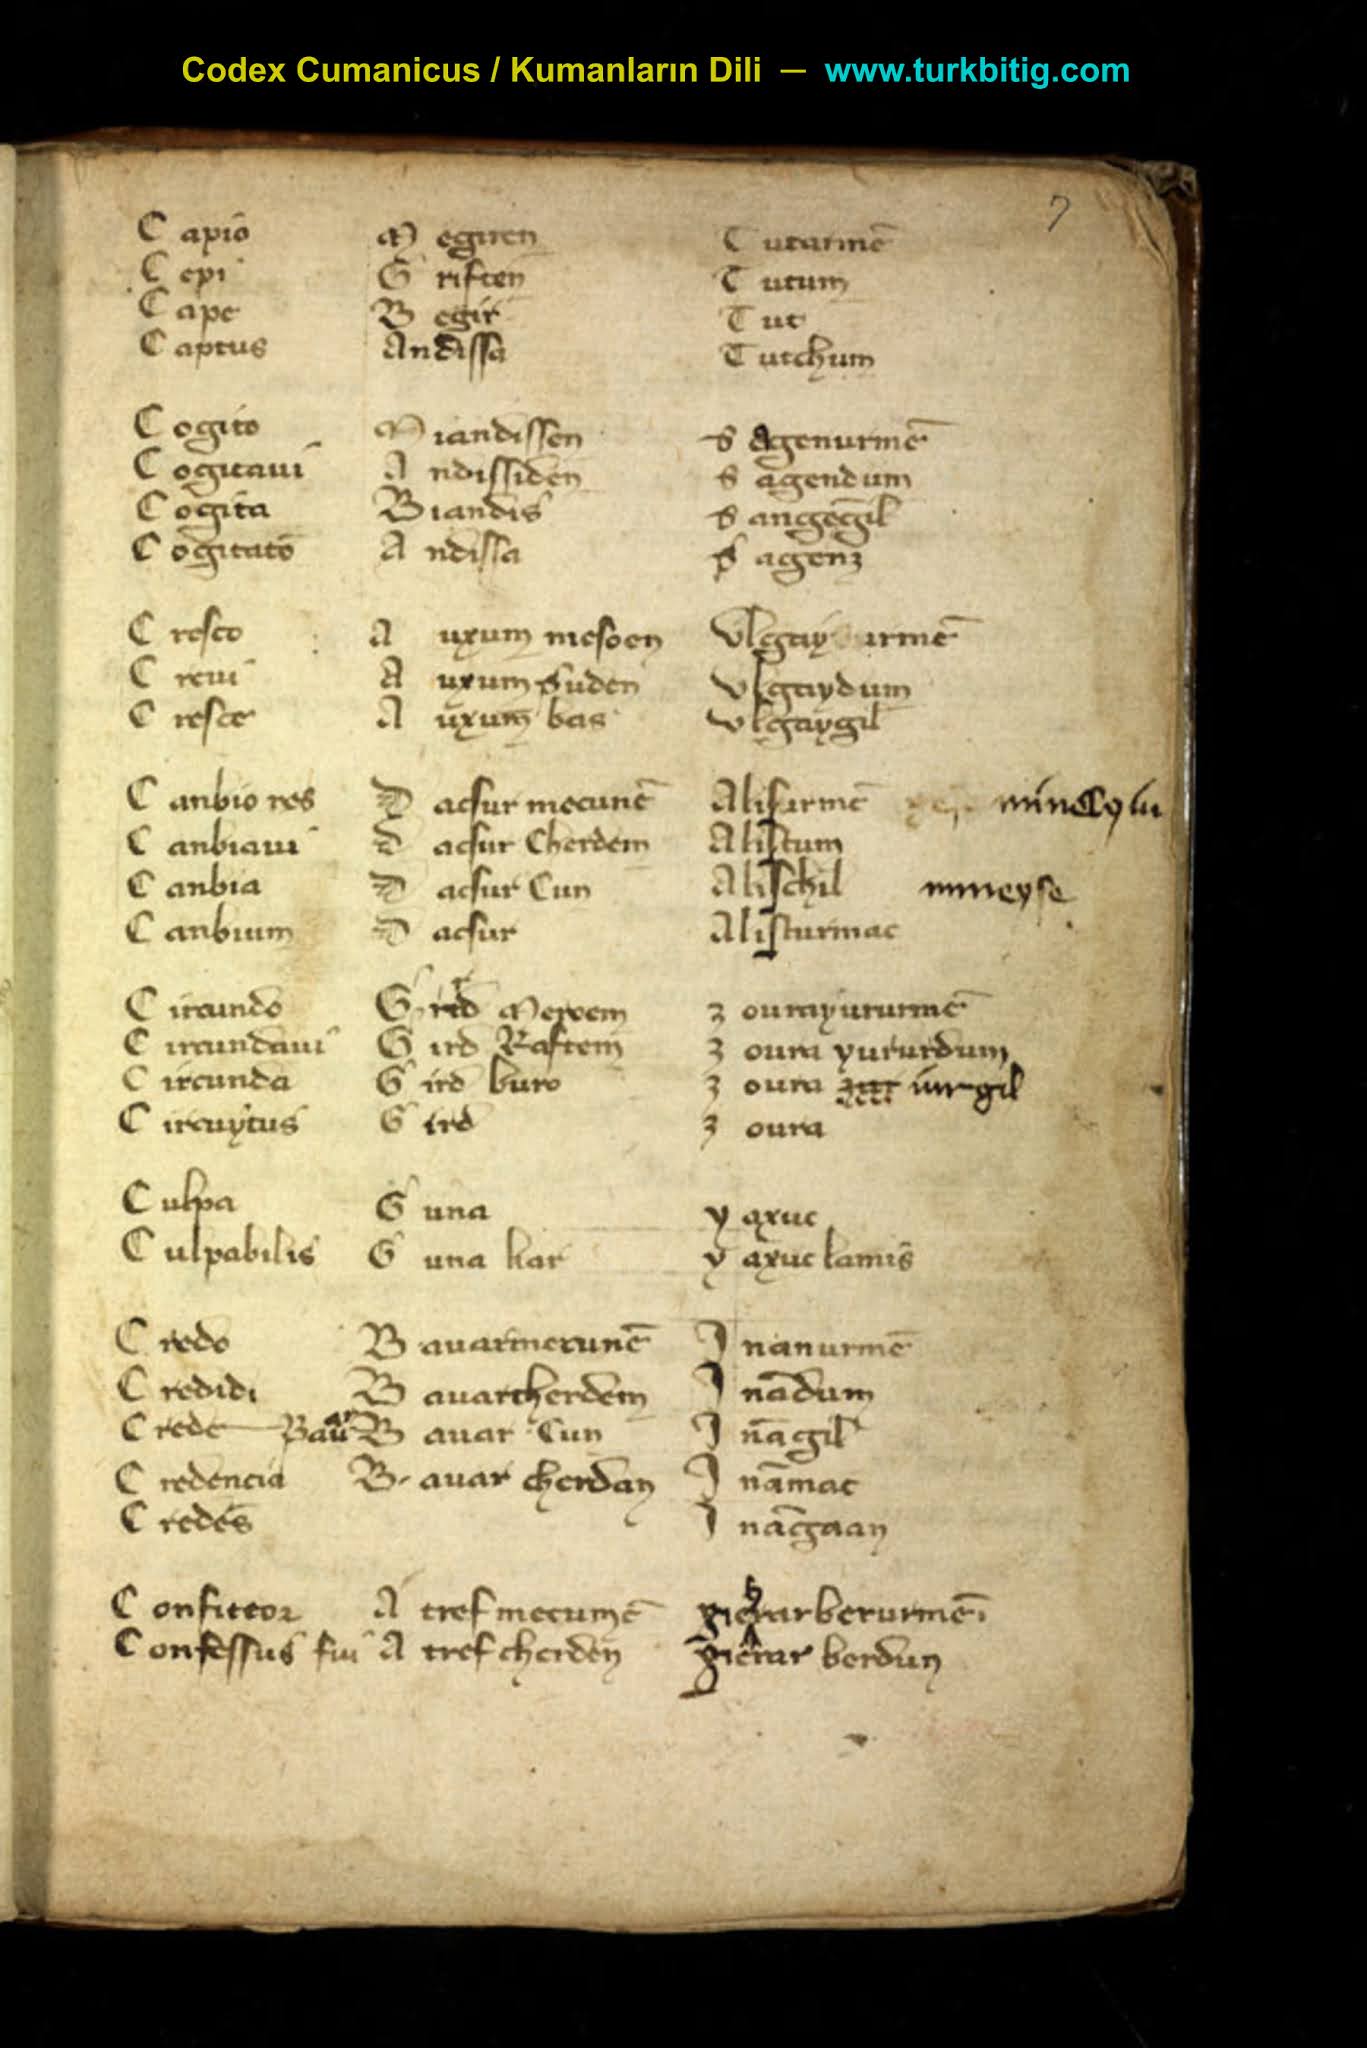 Codex Cumanicus / Kumanların Dili — www.turkbitig.com
7
Capiō Megiren Tutarmē
Cepi Griften Tutum
Cape Begir Tut
Captus Andissa Tutchum
Cogito Miandissen Sagenurmē
Cogitaui Andissiden Sagendum
Cogita Biandis Sangēgil
Cogitatō Andissa Sagenʒ
Cresco Auxum mesoen Vlgay urmē
Creui Auxum Suden Vlgaydum
Cresce Auxum bas Vlgaygil
Canbio res Dacsur mecunē Alisurmē
Canbiaui Dacsur Cherdem Alistum
Canbia Dacsur Cun Alischil mineyse
Canbium Dacsur Alisturmac
Circundo Gird Meroem ʒourayururmē
Circundaui Gird Raftem ʒoura yururdum
Circunda Gird buro ʒoura iurgil
Circuytus Gird ʒoura
Culpa Guna yaxuc
Culpabilis Guna kar yaxuclamis
Credo Bauarmecunē Inanurmē
Credidi Bauarcherdem Inādum
Crede Bauar Bauar Cun Ināgil
Credencia Bauar cherdan Ināmac
Credēs Ināgaan
Confiteor Atrefmecumē berurmē
Confessus fui Atrefcherden berdun